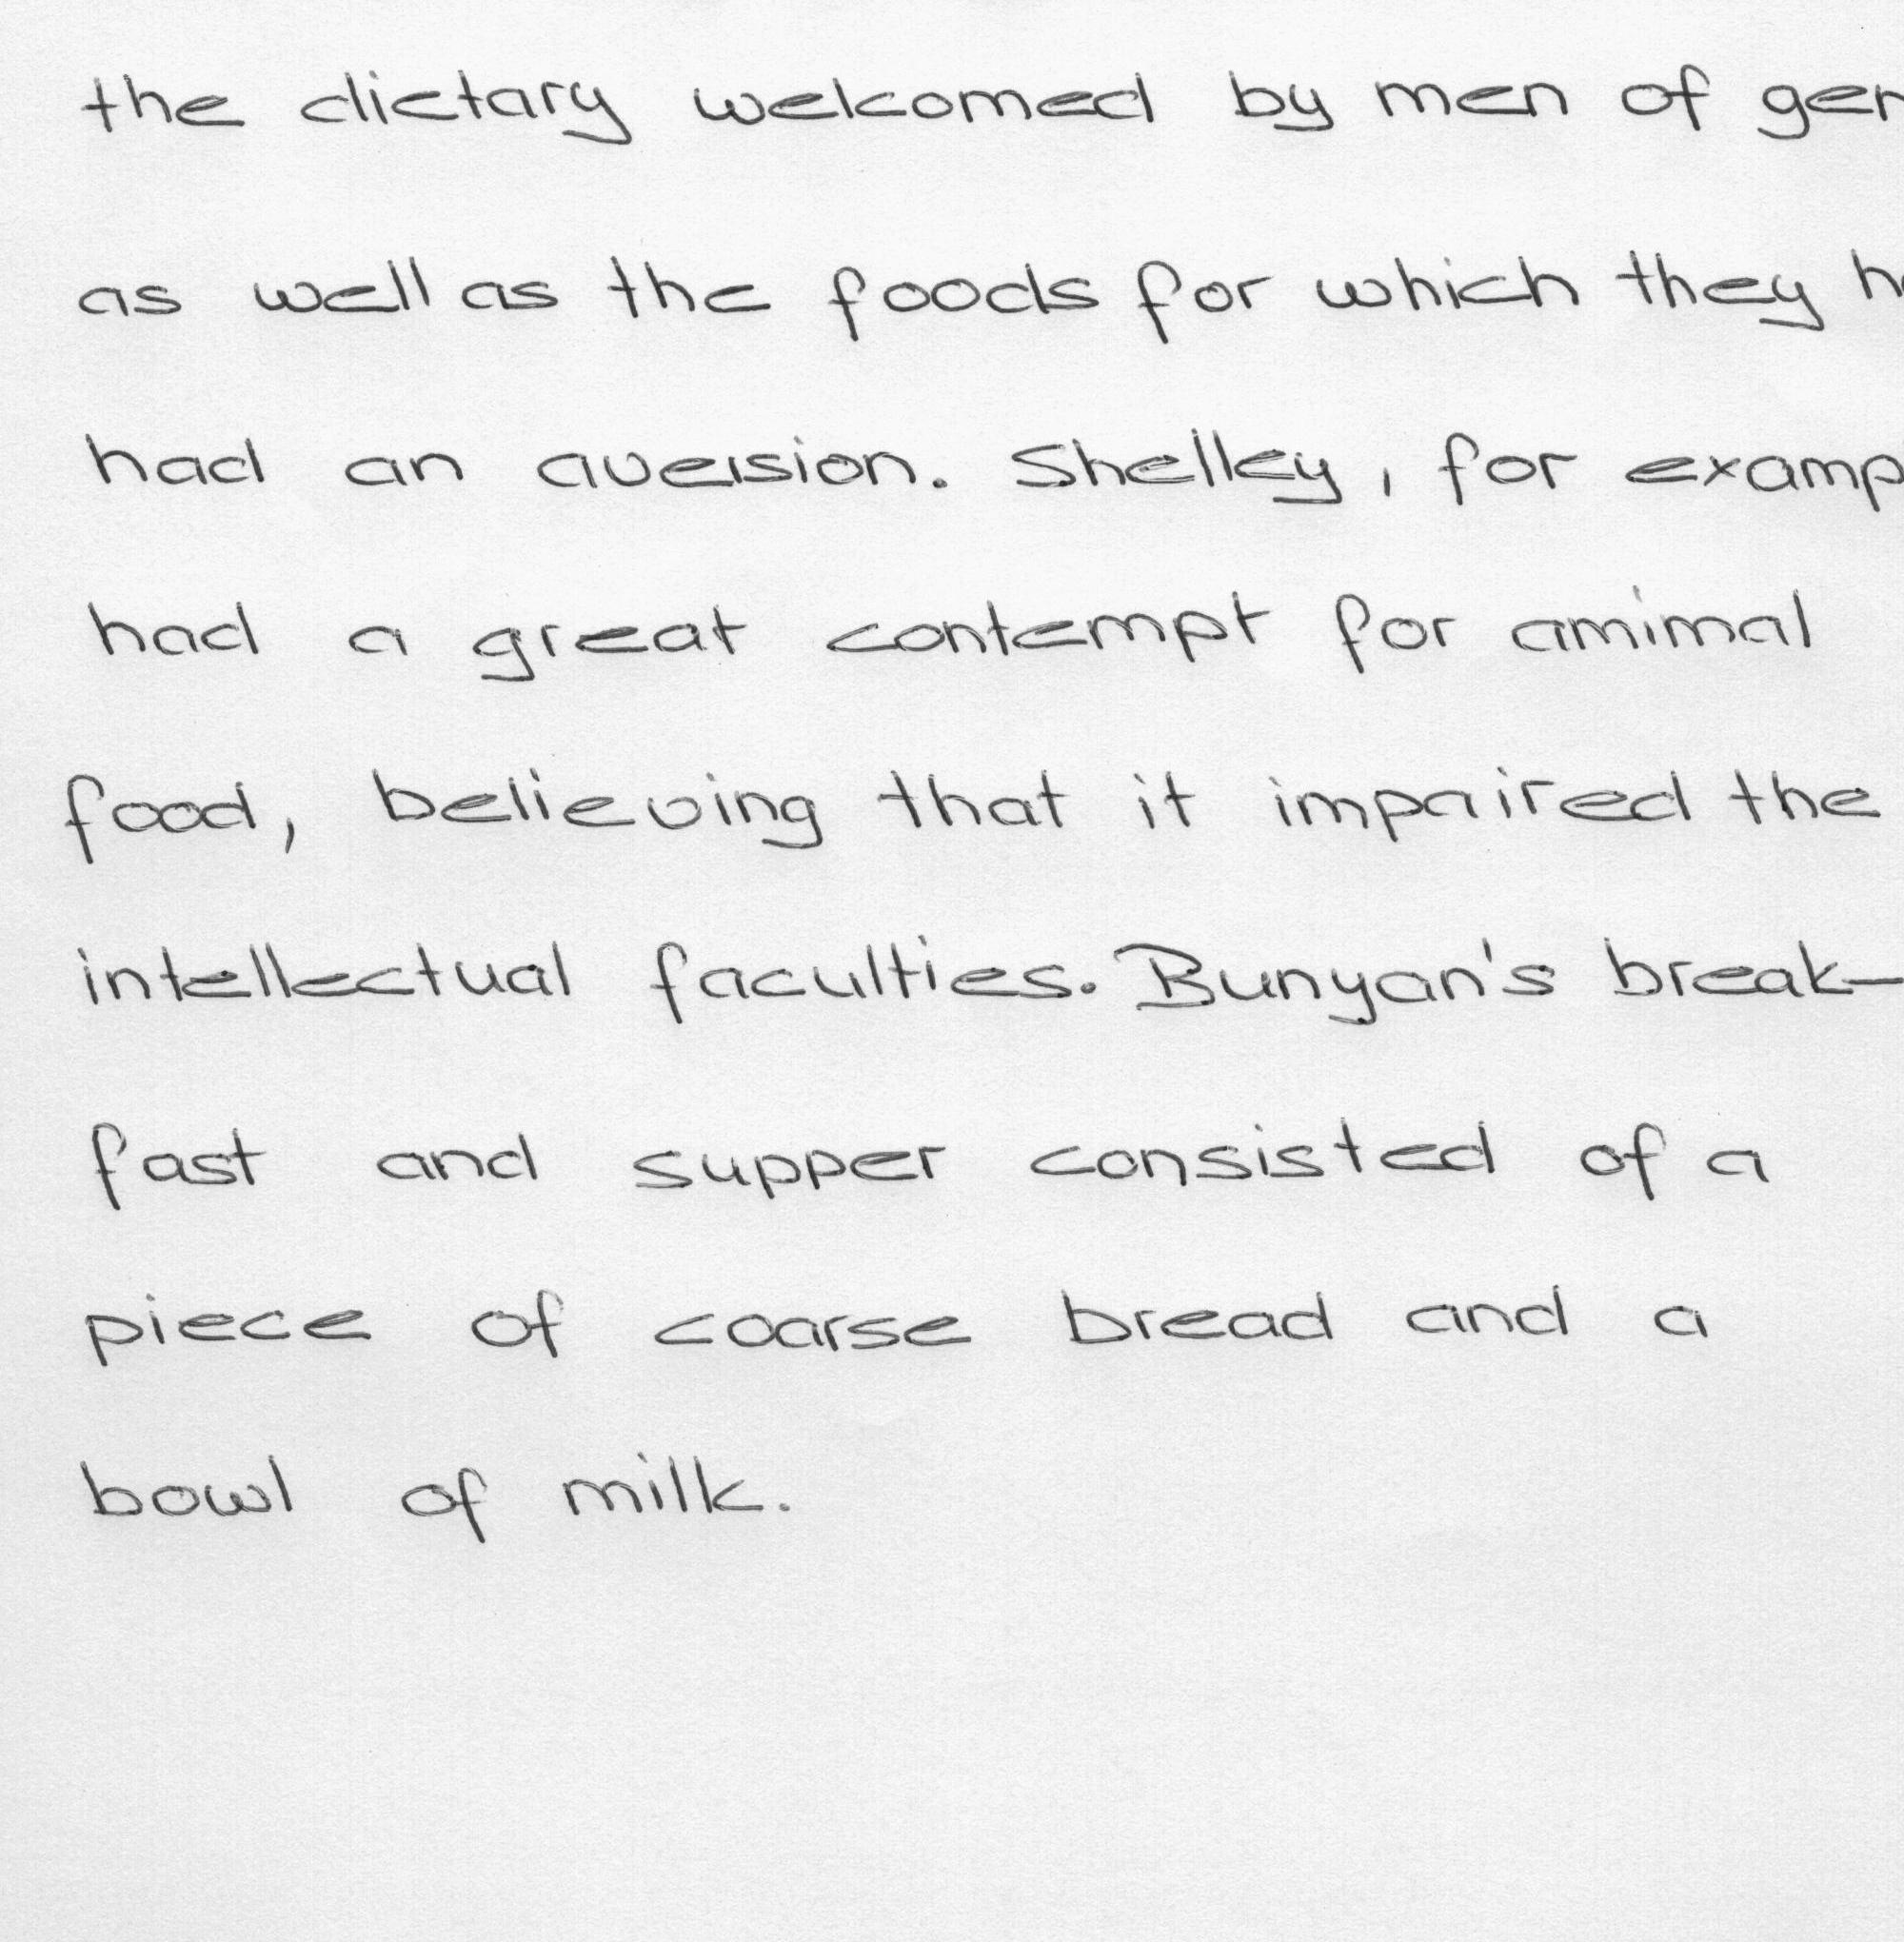 the dietary welcomed by men of
as well as the foods for which they
had an aversion. Shelley, for
had a great contempt for amimal
food, believing that it impaired the
intellectual faculties. Bunyan's break-
fast and supper consisted of a
piece of coarse bread and a
bowl of milk.